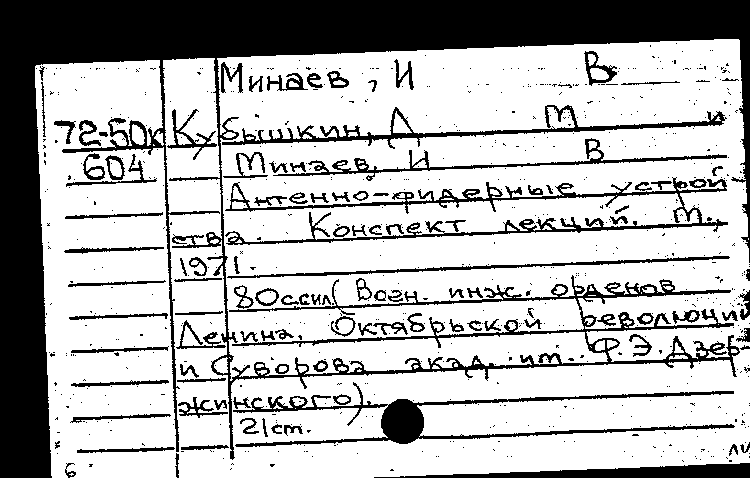 Минаев, И В
72-50к Кубышкин, Д М и
604 Минаев, И В
Антенно-фидерные устрой
ства. Конспект лекций. М.,
1971.
80с.сил. (Воен. инж. орденов
Ленина, Октябрьской революции
и Суворова акад. им. Ф.Э.Дзер-
жинского).
21ст.
6